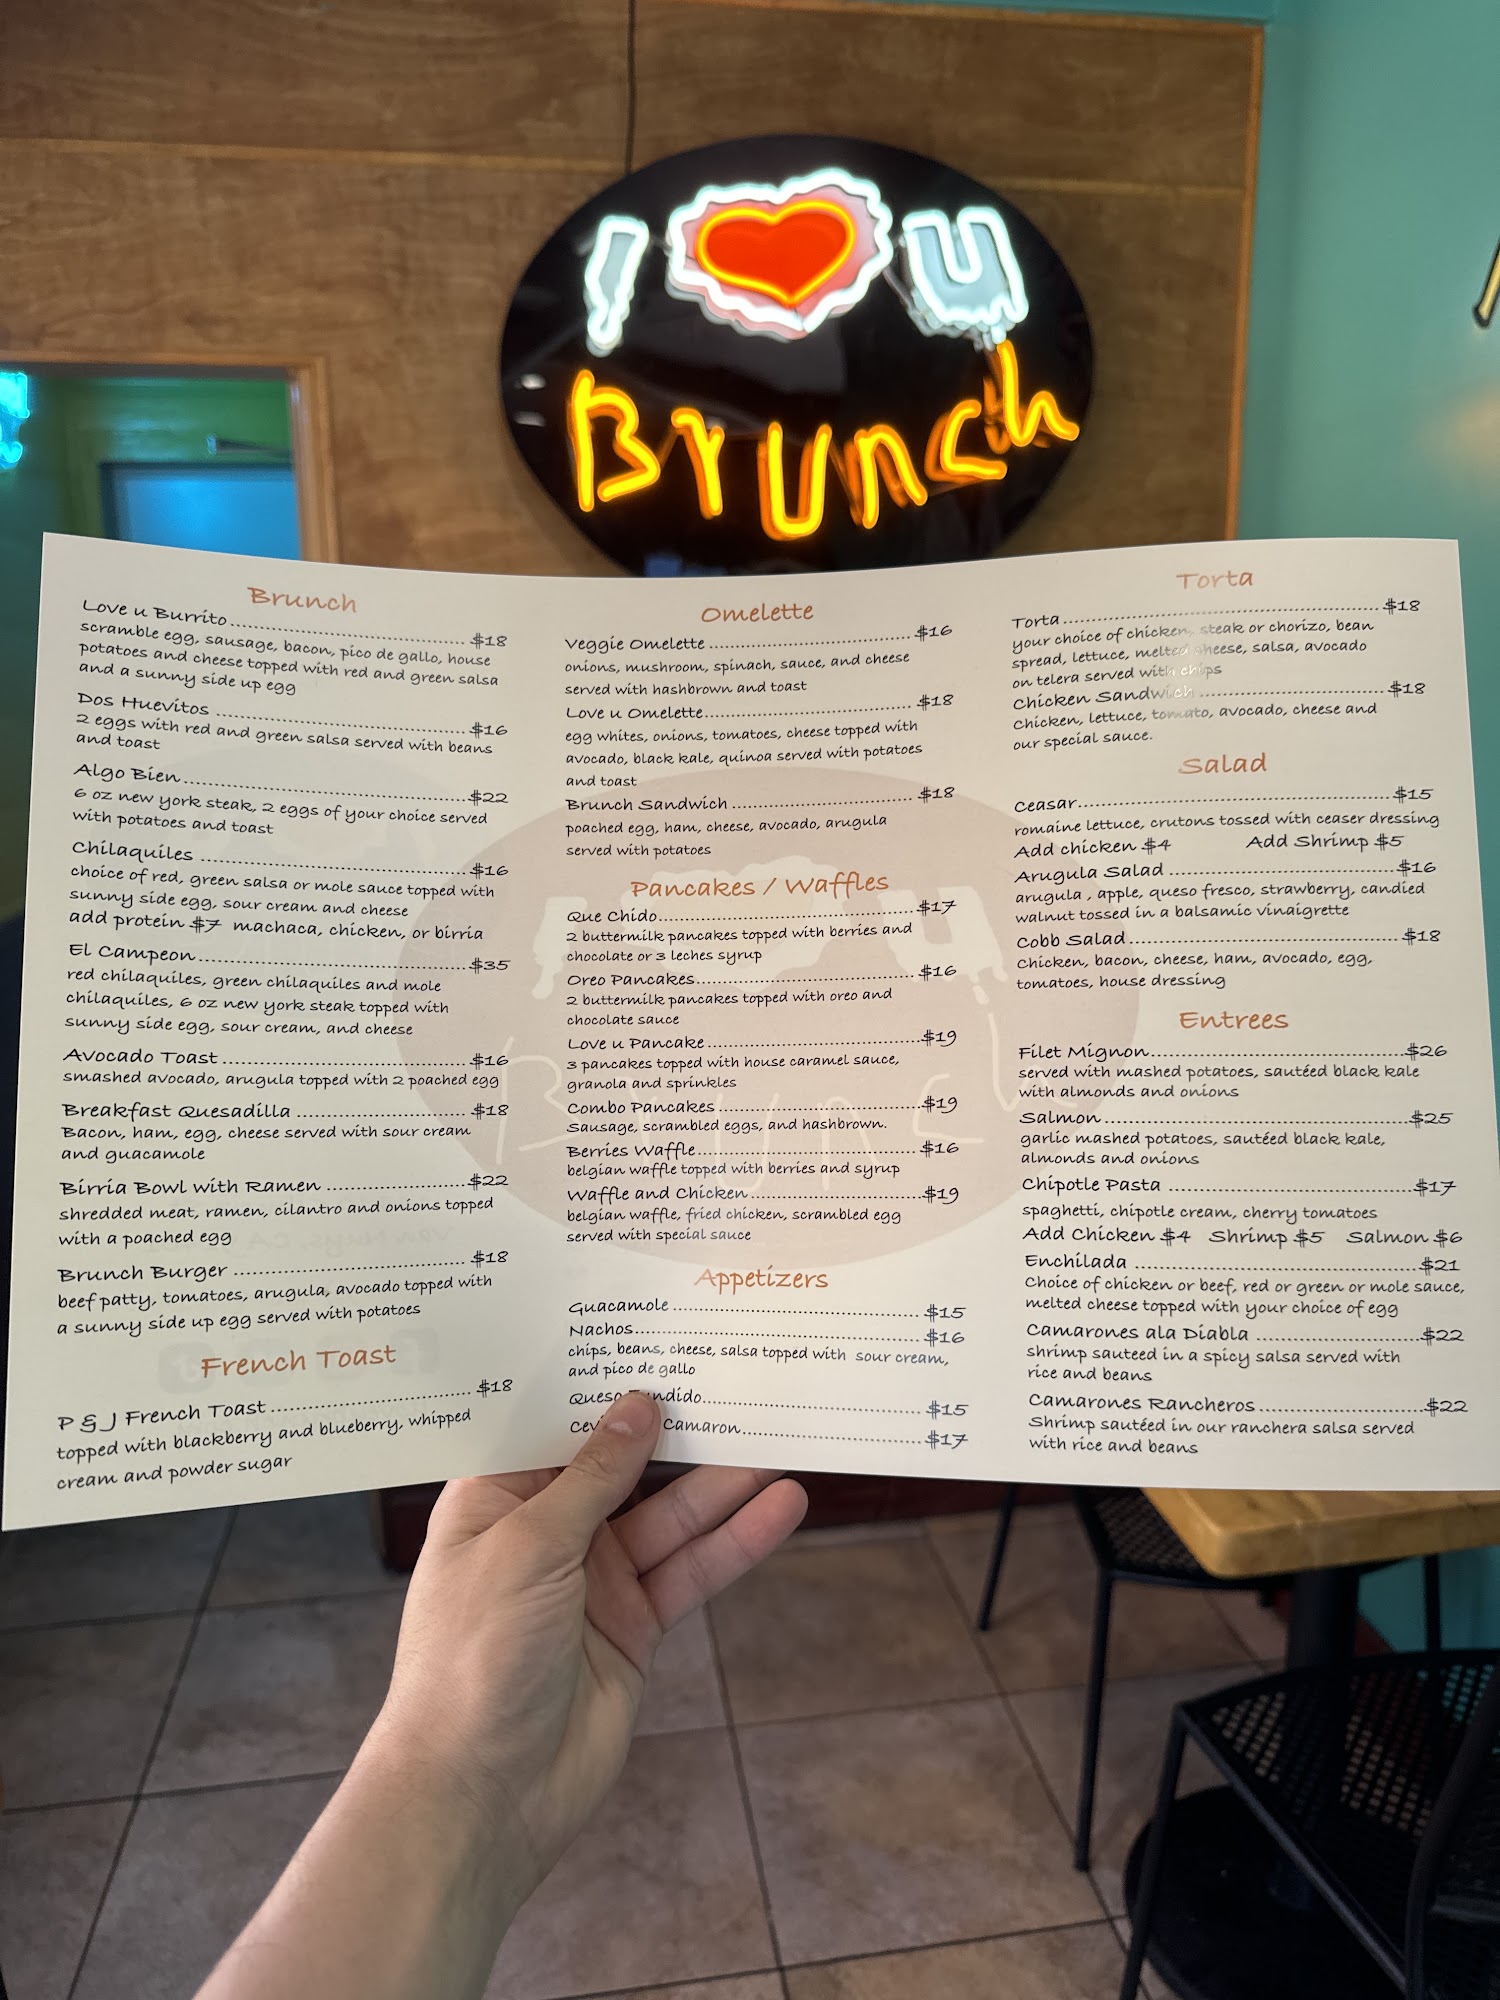 I u
Brunch
Brunch
Love u Burrito $18
scramble egg, sausage, bacon, pico de gallo, house
potatoes and cheese topped with red and green salsa
and a sunny side up egg
Dos Huevitos $16
2 eggs with red and green salsa served with beans
and toast
Algo Bien $22
6 oz new york steak, 2 eggs of your choice served
with potatoes and toast
Chilaquiles $16
choice of red, green salsa or mole sauce topped with
sunny side egg, sour cream and cheese
add protein $7 machaca, chicken, or birria
El Campeon $35
red chilaquiles, green chilaquiles and mole
chilaquiles, 6 oz new york steak topped with
sunny side egg, sour cream, and cheese
Avocado Toast $16
smashed avocado, arugula topped with 2 poached egg
Breakfast Quesadilla $18
Bacon, ham, egg, cheese served with sour cream
and guacamole
Birria Bowl with Ramen $22
shredded meat, ramen, cilantro and onions topped
with a poached egg
Brunch Burger $18
beef patty, tomatoes, arugula, avocado topped with
a sunny side up egg served with potatoes
French Toast
P & J French Toast $18
topped with blackberry and blueberry, whipped
cream and powder sugar
Omelette
Veggie Omelette $16
onions, mushroom, spinach, sauce, and cheese
served with hashbrown and toast
Love u Omelette $18
egg whites, onions, tomatoes, cheese topped with
avocado, black kale, quinoa served with potatoes
and toast
Brunch Sandwich $18
poached egg, ham, cheese, avocado, arugula
served with potatoes
Pancakes / Waffles
Que Chido $17
2 buttermilk pancakes topped with berries and
chocolate or 3 leches syrup
Oreo Pancakes $16
2 buttermilk pancakes topped with oreo and
chocolate sauce
Love u Pancake $19
3 pancakes topped with house caramel sauce,
granola and sprinkles
Combo Pancakes $19
Sausage, scrambled eggs, and hashbrown.
Berries Waffle $16
belgian waffle topped with berries and syrup
Waffle and Chicken $19
belgian waffle, fried chicken, scrambled egg
served with special sauce
Appetizers
Guacamole $15
Nachos $16
chips, beans, cheese, salsa topped with sour cream,
and pico de gallo
Queso Fundido $15
Camaron $17
Torta
Torta $18
your choice of chicken, steak or chorizo, bean
spread, lettuce, melted cheese, salsa, avocado
on telera served with chips
Chicken Sandwich $18
Chicken, lettuce, tomato, avocado, cheese and
our special sauce.
Salad
Ceasar $15
romaine lettuce, crutons tossed with ceaser dressing
Add chicken $4 Add Shrimp $5
Arugula Salad $16
arugula , apple, queso fresco, strawberry, candied
walnut tossed in a balsamic vinaigrette
Cobb Salad $18
Chicken, bacon, cheese, ham, avocado, egg,
tomatoes, house dressing
Entrees
Filet Mignon $26
served with mashed potatoes, sautéed black kale
with almonds and onions
Salmon $25
garlic mashed potatoes, sautéed black kale,
almonds and onions
Chipotle Pasta $17
spaghetti, chipotle cream, cherry tomatoes
Add Chicken $4 Shrimp $5 Salmon $6
Enchilada $21
Choice of chicken or beef, red or green or mole sauce,
melted cheese topped with your choice of egg
Camarones ala Diabla $22
shrimp sauteed in a spicy salsa served with
rice and beans
Camarones Rancheros $22
Shrimp sautéed in our ranchera salsa served
with rice and beans